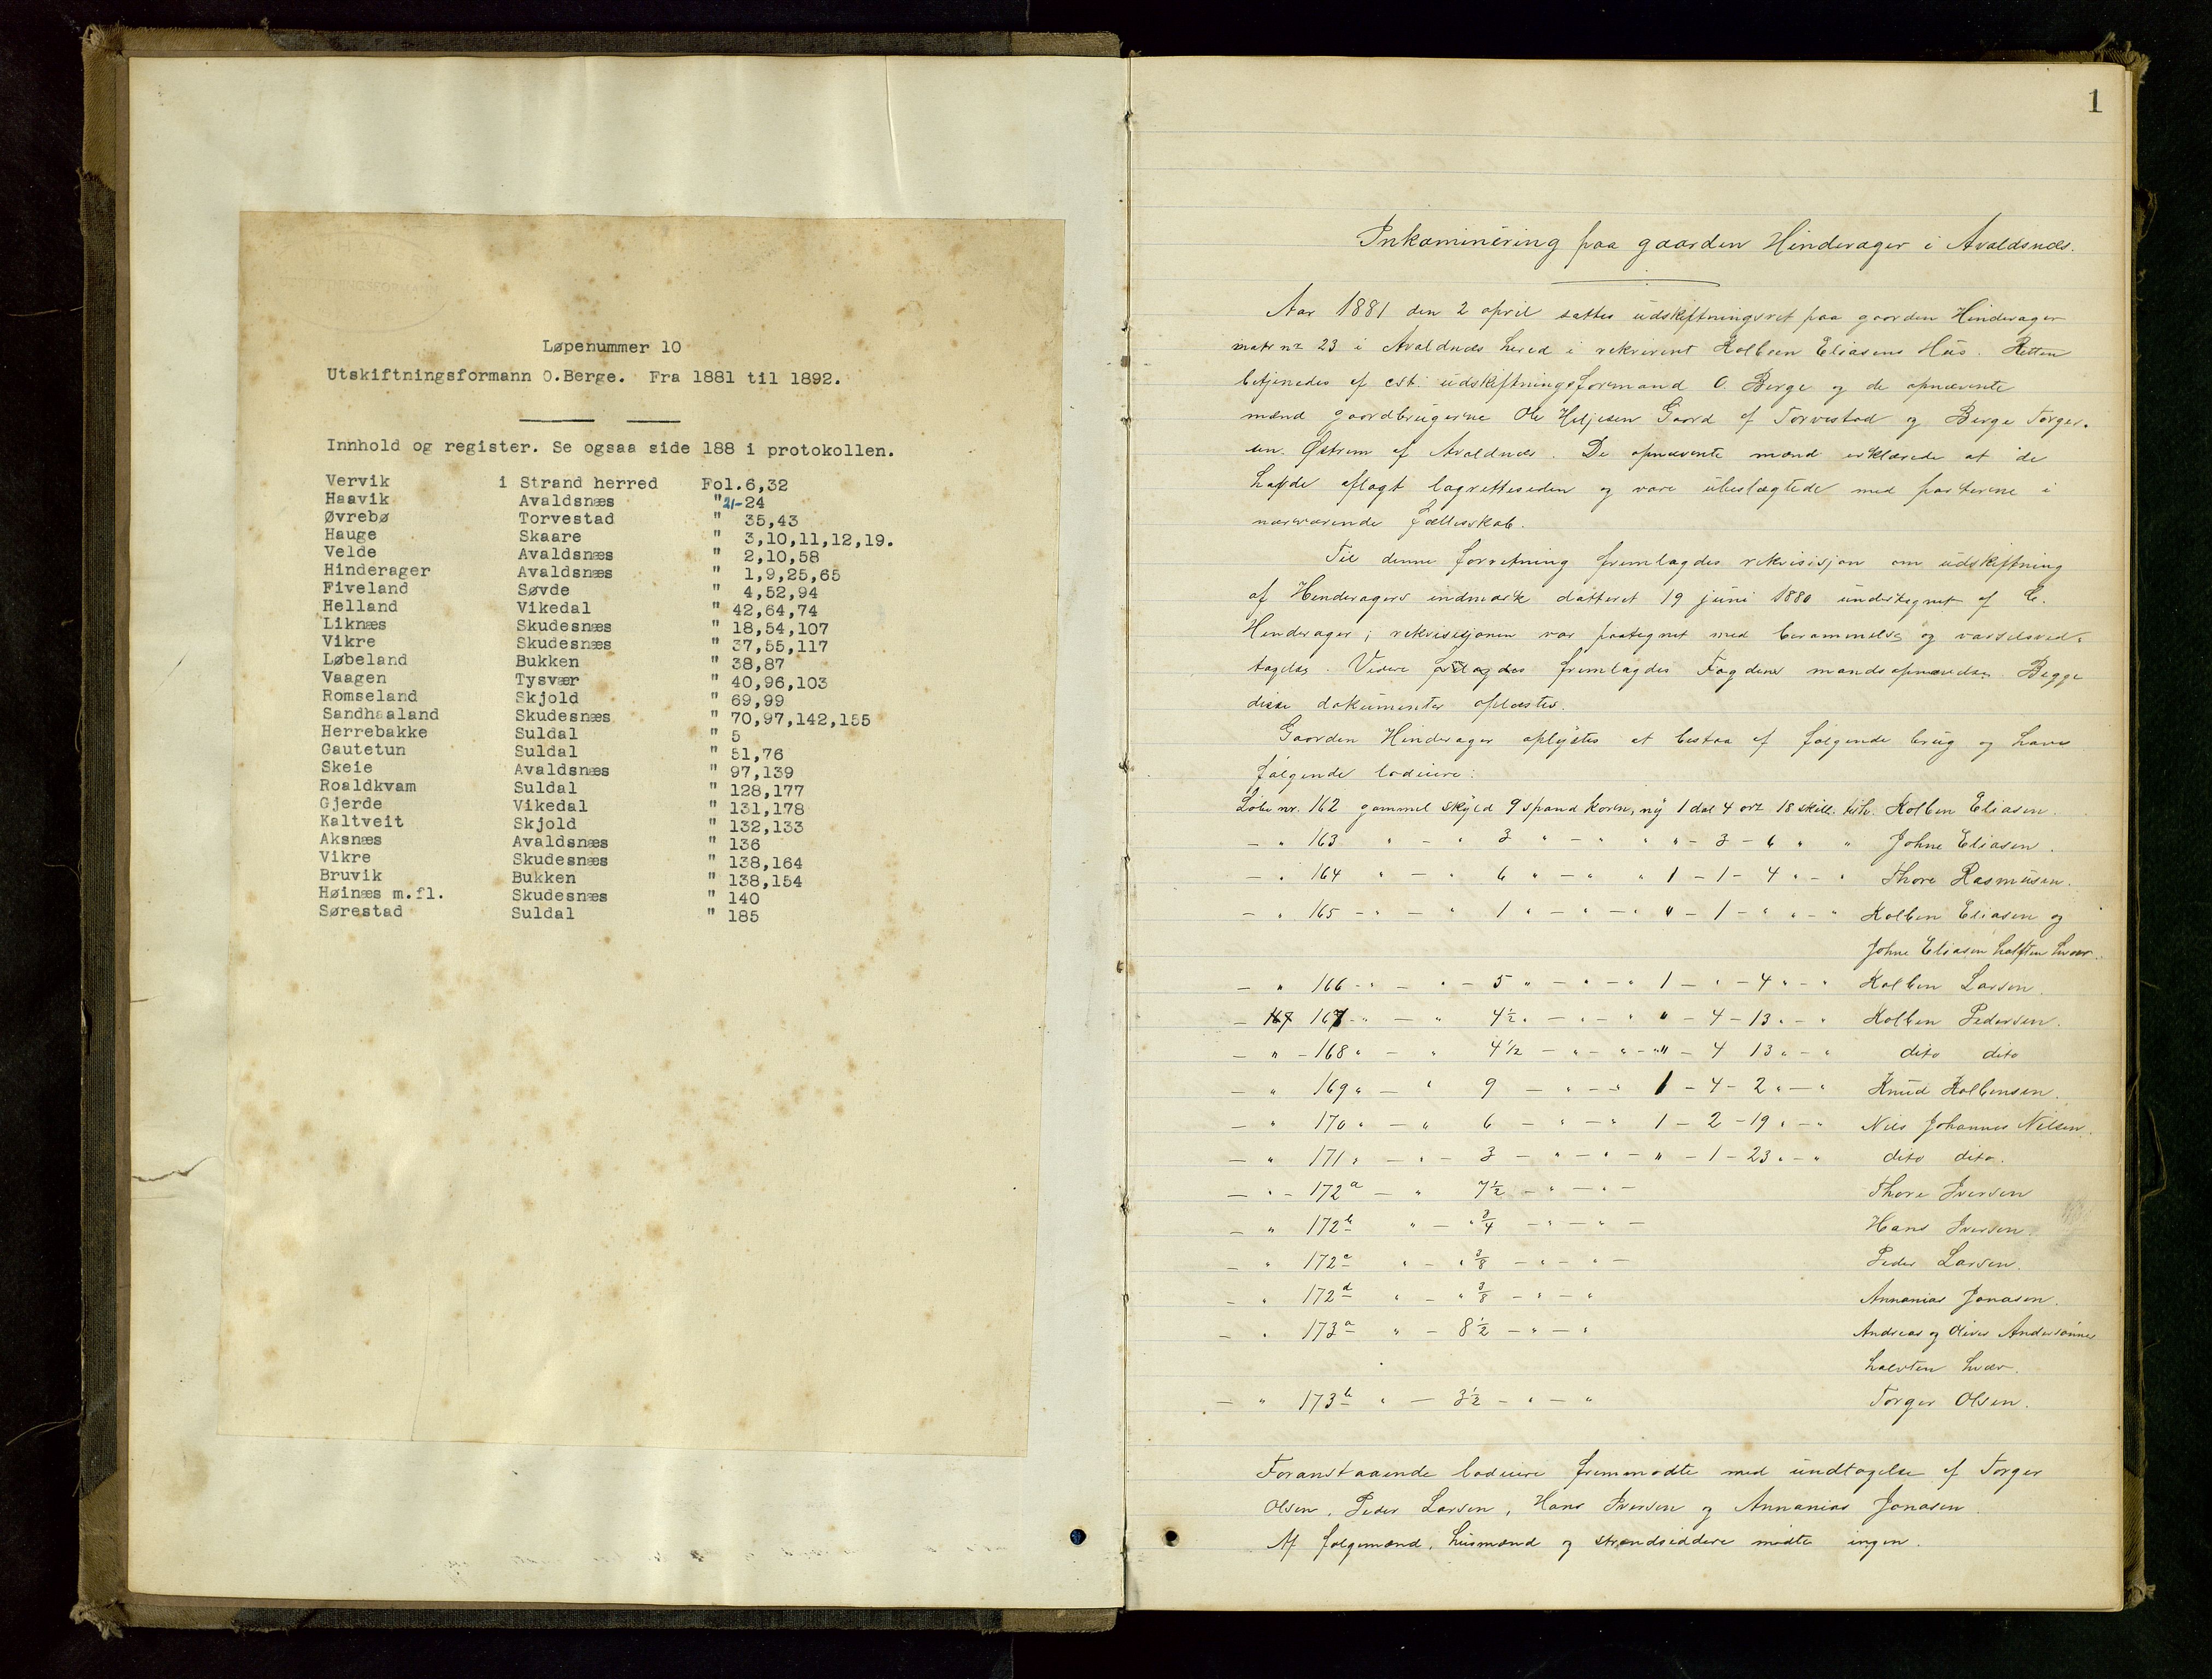 Løpenummer 10
Utskiftningsformann O.Berge. Fra 1881 til 1892.
Innhold og register. Se ogsaa side 188 i protokollen.
Vervik i Strand herred Fol.6,32
Haavik Avaldsnæs " 21-24
Øvrebø Torvestad " 35,43
Hauge Skaare " 3,10,11,12,19.
Velde Avaldsnæs " 2,10,58
Hinderager Avaldsnæs " 1,9,25,65
Fiveland Søvde " 4,52,94
Helland Vikedal " 42,64,74
Liknæs Skudesnæs " 18,54,107
Vikre Skudesnæs " 37,55,117
Løbeland Bukken " 38,87
Vaagen Tysvær " 40,96,103
Romseland Skjold " 69,99
Sandhaaland Skudesnæs " 70,97,142,155
Herrebakke Suldal " 5
Gautetun Suldal " 51,76
Skeie Avaldsnæs " 97,139
Roaldkvam Suldal " 128,177
Gjerde Vikedal " 131,178
Kaltveit Skjold " 132,133
Aksnæs Avaldsnæs " 136
Vikre Skudesnæs " 138,164
Bruvik Bukken " 138,154
Høinæs m.fl. Skudesnæs " 140
Sørestad Suldal " 185
1
Inkaminering paa gaarden Hinderager i Avaldsnæs.
Aar 1881 den 2 april sattes udskiftningsret paa gaarden Hinderager
matr nr 23 i Avaldnæs hered i rekvirent Kolben Eliasens Hus. Retten
betjenedes af cst. udskiftningsformand O. Berge og de opnævnte
mænd gaardbrugerne Ole Heljesen Gaard af Torvestad og Berge Torger-
sen Østrem af Avaldnæs. De opnævnte mænd erklærede at de
hafde aflagt lagretteseden og vare ubeslægtede med parterne i
nærværende fællesskab.
Til denne forretning fremlagdes rekvisisjon om udskiftning
af Hinderagers indmark datteret 19 juni 1880 undertegnet af C.
Hinderager; rekvisisjonen var paategnet med berammelse og varselsved-
tagelse. Videre fremlagdes Fogdens mandsopnævnelse. Begge
disse dokumenter oplæstes.
Gaarden Hinderager oplystes at bestaa af følgende brug og have
følgende lodeiere:
Løbe nr. 162 gammel skyld 9 spand korn, ny 1 dal 4 ort 18 skill. Kolben Eliasen.
- " 163 " - " 3 " - " " " - 3 - 6 " " Johne Eliasen.
- " 164 " - " 6 " - " " 1 - 1 - 4 " - " Thore Rasmusen.
- " 165 - " - " 1 " - " - " " - 1 - " " - " Kolben Eliasen og
Johne Eliasen halften hver.
- " 166 - " - " - 5 " - " - " 1 - " - 4 " - " Kolben Larsen.
- 167 167 - " - " 4½ " - " - " " - 4 - 13 " - " Kolben Pedersen.
- " - 168 " - " 4½ - " - " - " - 4 13 " - " dito dito
- " 169 " - " 9 - " - " 1 - 4 - 2 " - " Knud Kolbensen.
- " 170 " - " 6 - " - " 1 - 2 - 19 " - " Nils Johannes Nilsen.
- " 171 " - " - 3 - " - " - " - 1 - 23 " - " dito dito.
- " - 172a - " 7½ - " - " - Thore Iversen
- " 172b " - " ¾ - " - " - Hans Iversen.
- " 172c " - " ⅜ - " - " - Peder Larsen.
- " 172d " - " ⅜ - " - " Annanias Jonasen.
- " 173a " - 8½ - " - " Andreas og Oliver Andersønner
halvten hver.
- " 173b " - 3½ - " - " Torger Olsen.
Foranstaaende lodeiere fremmødte med undtagelse af Torger
Olsen, Peder Larsen, Hans Iversen og Annanias Jonasen.
Af følgemænd, husmænd og strandsiddere mødte ingen.